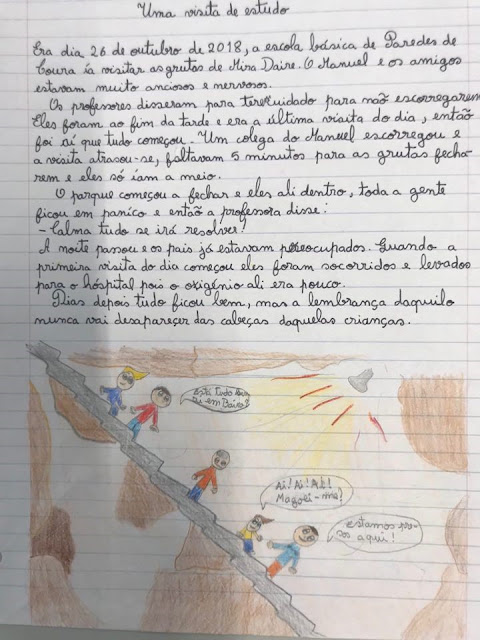 Uma visita de estudo
Era dia 26 de outubro de 2018, a escola básica de Paredes de
Coura ía visitar as grutas de Mira Daire. O Manuel e os amigos
estavam muito anciosos e nervosos.
Os professores disseram para terem cuidado para não escorregarem.
Eles foram ao fim da tarde e era a última visita do dia, então
foi aí que tudo começou. Um colega do Manuel escorregou e
a visita atrasou-se, faltavam 5 minutos para as grutas fecha-
rem e eles só íam a meio.
O parque começou a fechar e eles ali dentro, toda a gente
ficou em panico e então a professora disse:
- Calma tudo se irá resolver!
A noite passou e os pais já estavam preocupados. Quando a
primeira visita do dia começou eles foram socorridos e levados
para o hóspital pois o oxigénio ali era pouco.
Dias depois tudo ficou bem, mas a lembrança daquilo
nunca vai desapareçer das cabeças daquelas crianças.
Está tudo
em Baixo?
Ai! Ai! Ai!
Magoei-me!
Estamos pre-
sos aqui!